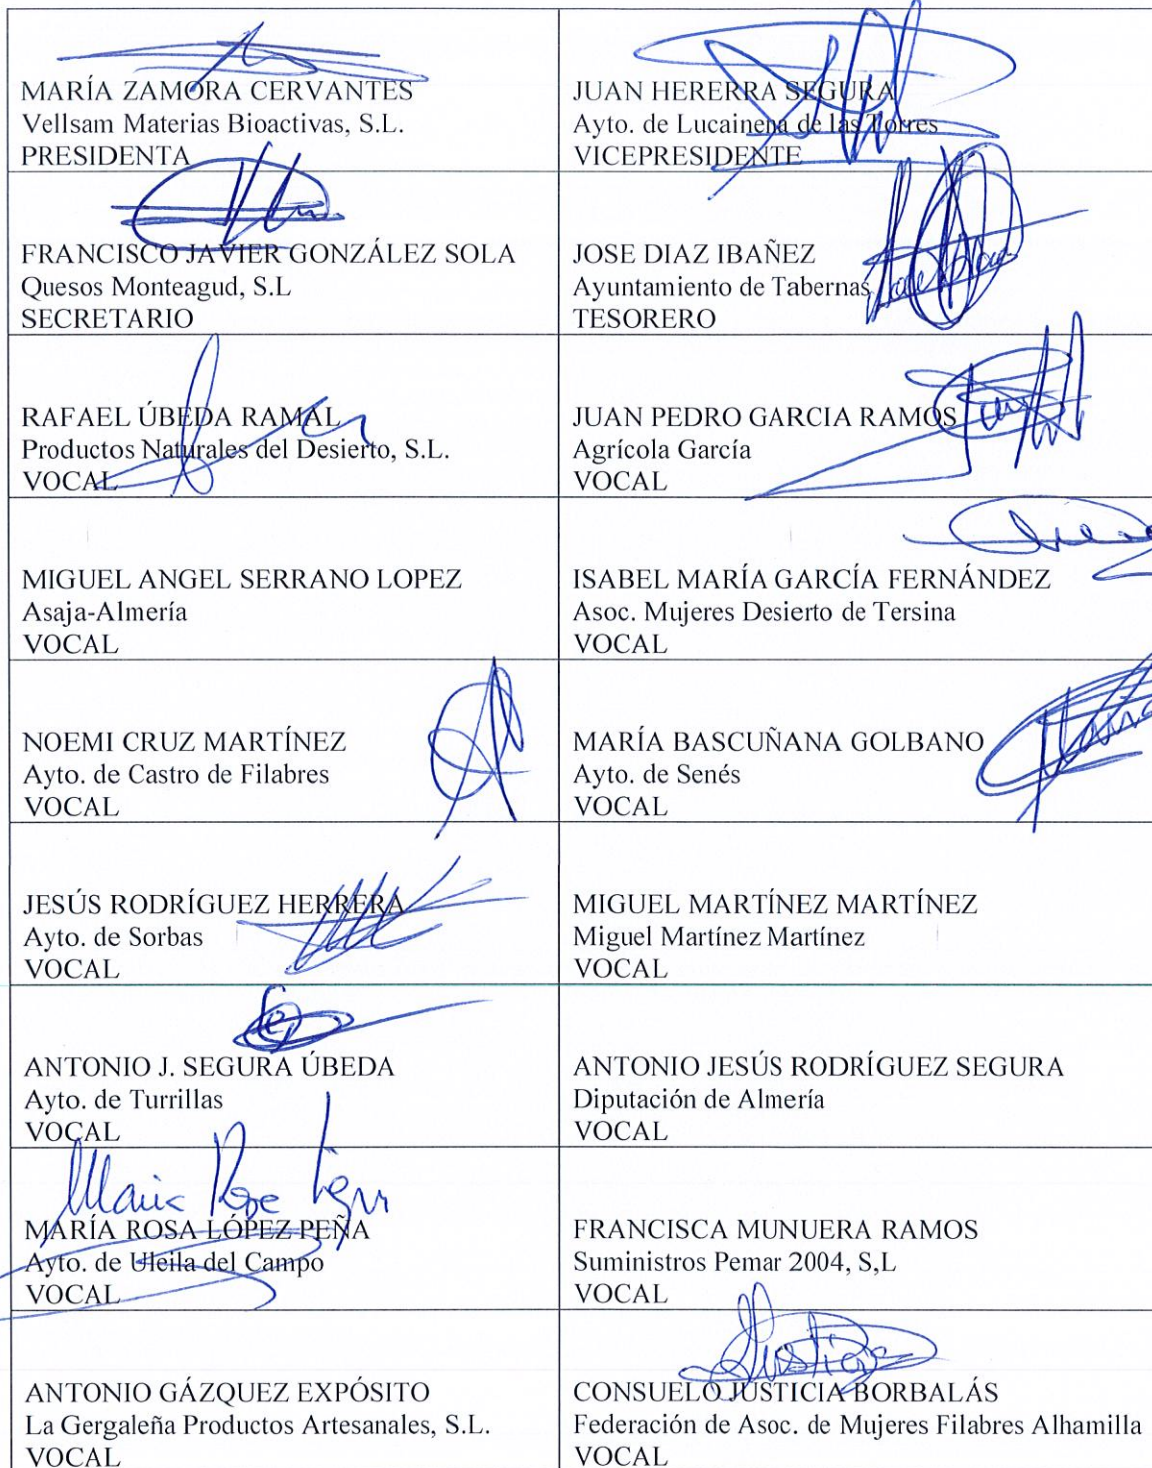 MARÍA ZAMORA CERVANTES
Vellsam Materias Bioactivas, S.L.
PRESIDENTA
JUAN HERERRA SEGURA
Ayto. de Lucainena de las Torres
VICEPRESIDENTE
FRANCISCO JAVIER GONZÁLEZ SOLA
Quesos Monteagud, S.L
SECRETARIO
JOSE DIAZ IBAÑEZ
Ayuntamiento de Tabernas
TESORERO
RAFAEL ÚBEDA RAMAL
Productos Naturales del Desierto, S.L.
VOCAL
JUAN PEDRO GARCIA RAMOS
Agrícola García
VOCAL
MIGUEL ANGEL SERRANO LOPEZ
Asaja-Almería
VOCAL
ISABEL MARÍA GARCÍA FERNÁNDEZ
Asoc. Mujeres Desierto de Tersina
VOCAL
NOEMI CRUZ MARTÍNEZ
Ayto. de Castro de Filabres
VOCAL
MARÍA BASCUÑANA GOLBANO
Ayto. de Senés
VOCAL
JESÚS RODRÍGUEZ HERRERA
Ayto. de Sorbas
VOCAL
MIGUEL MARTÍNEZ MARTÍNEZ
Miguel Martínez Martínez
VOCAL
ANTONIO J. SEGURA ÚBEDA
Ayto. de Turrillas
VOCAL
ANTONIO JESÚS RODRÍGUEZ SEGURA
Diputación de Almería
VOCAL
Maria Rosa
MARÍA ROSA LÓPEZ PEÑA
Ayto. de Uleila del Campo
VOCAL
FRANCISCA MUNUERA RAMOS
Suministros Pemar 2004, S,L
VOCAL
ANTONIO GÁZQUEZ EXPÓSITO
La Gergaleña Productos Artesanales, S.L.
VOCAL
CONSUELO JUSTICIA BORBALÁS
Federación de Asoc. de Mujeres Filabres Alhamilla
VOCAL